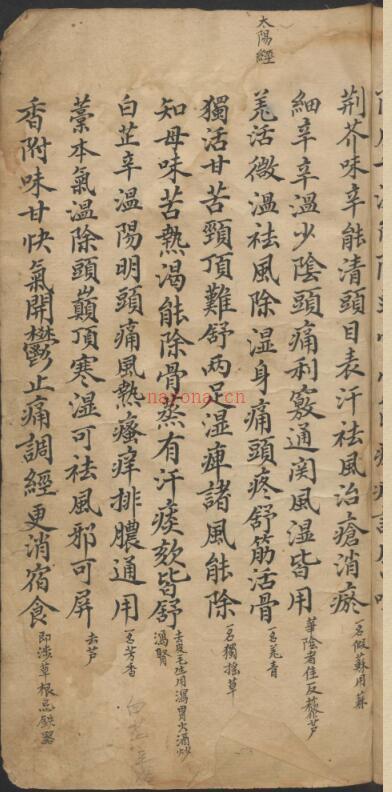 荆芥味辛能清頭目表汗祛風治瘡消瘀
一名假蘇用蘇
細辛辛溫少陰頭痛利竅通関風湿皆用
華陰者佳反藜芦
太陽經
羌活微溫祛風除湿身痛頭疼舒筋活骨
一名羌青
獨活甘苦頸頂難舒两足湿痺諸風能除
一名獨搖草
知母味苦熱渴能除骨蒸有汗痰欬皆舒
去皮毛生用瀉胃火酒炒
瀉腎
白芷辛溫陽明頭痛風熱瘙痒排膿通用
一名芳香
藁本氣溫除頭巔頂寒湿可祛風邪可屏
去芦
香附味甘快氣開鬱止痛調經更消宿食
即莎草根忌鉄器
nayonai.cn